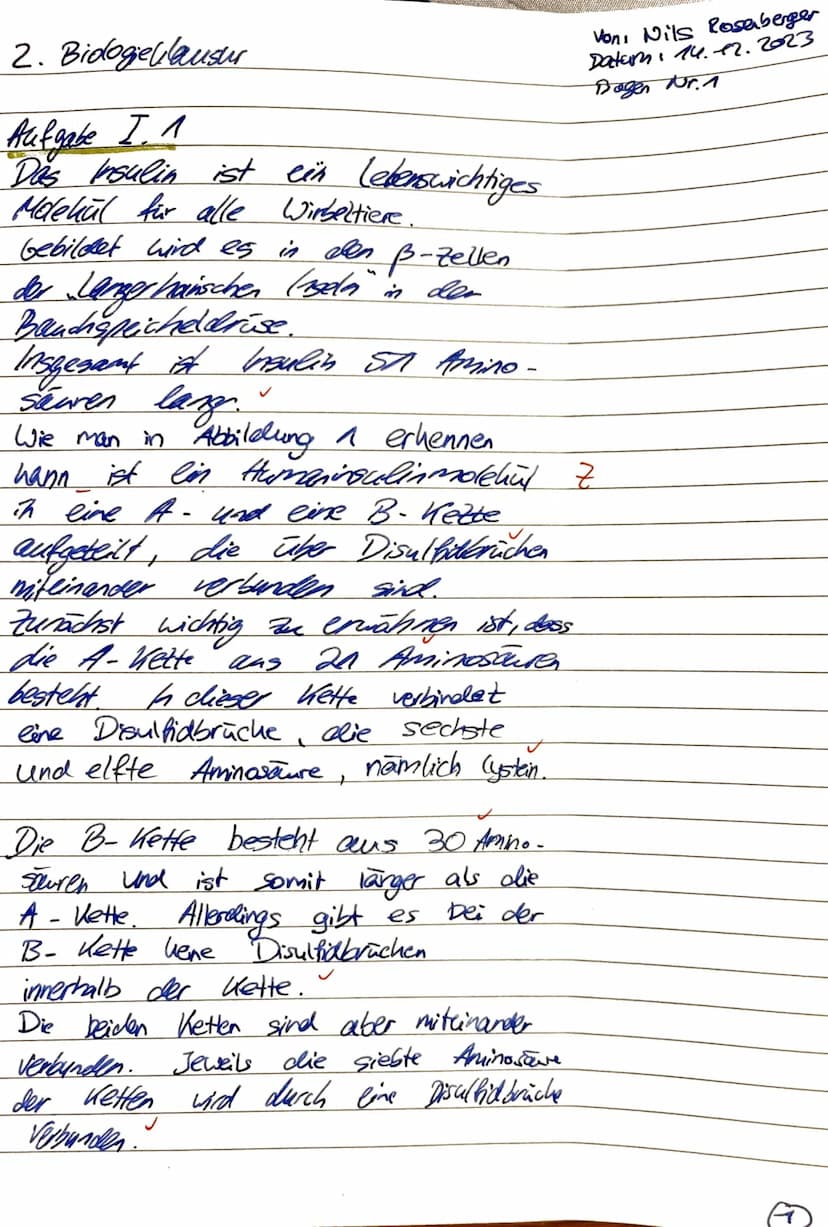 2. Biologieklausur
Von: Nils Rosenberger
Datum: 14.12.2023
Bogen Nr. 1
Aufgabe I.1
Das Insulin ist ein lebenswichtiges
Molekül für alle Wirbeltiere.
Gebildet wird es in den β-Zellen
der „Langerhanschen Inseln" in der
Bauchspeicheldrüse.
Insgesamt ist Insulin 51 Amino-
säuren lang.
Wie man in Abbildung 1 erkennen
kann ist ein Humaninsulinmolekül Z
in eine A- und eine B-Kette
aufgeteilt, die über Disulfidbrücken
miteinander verbunden sind.
Zunächst wichtig zu erwähnen ist, dass
die A-Kette aus 21 Aminosäuren
besteht. In dieser Kette verbindet
eine Disulfidbrücke, die sechste
und elfte Aminosäure, nämlich Cystein.
Die B-Kette besteht aus 30 Amino-
säuren und ist somit länger als die
A-Kette. Allerdings gibt es bei der
B-Kette kene Disulfidbrücken
innerhalb der Kette.
Die beiden Ketten sind aber miteinander
verbunden. Jeweils die siebte Aminosäure
der Ketten wird durch eine Disulfidbrücke
verbunden.
1